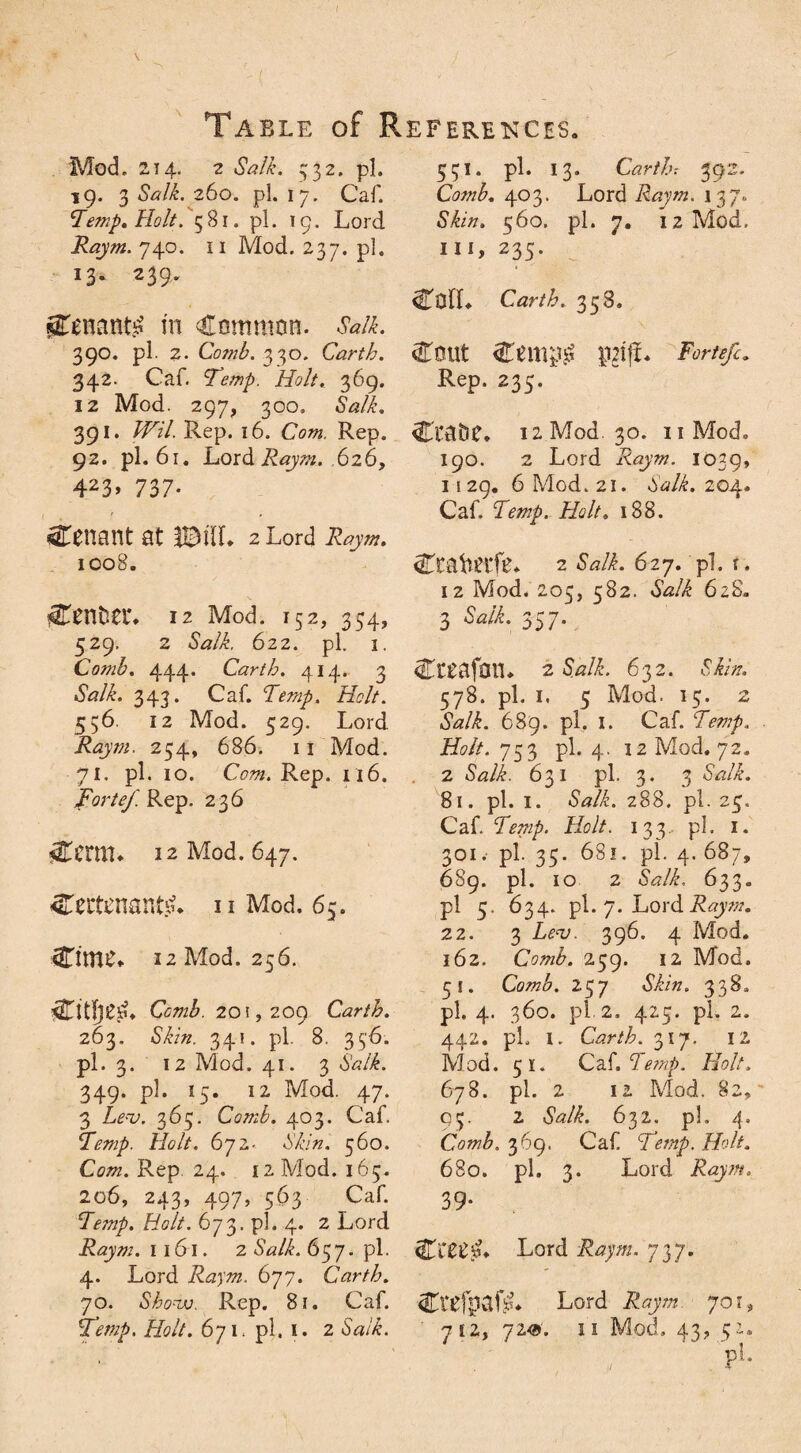 Table of References.
Mod. 214. 2 Salk. 532. pl.
19. 3 Salk. 260. pl. 17. Caſ.
Temp. Holt. 581. pl. 19. Lord
Raym. 740. 11 Mod. 237. pl.
13. 239.
Tenants in Common. Salk.
390. pl. 2. Comb. 330. Carth.
342. Caſ. Temp. Holt. 369.
12 Mod. 297, 300. Salk.
391. Wil. Rep. 16. Com. Rep.
92. pl. 61. Lord Raym. 626,
423, 737.
Tenant at Will. 2 Lord Raym.
1008.
Tender. 12 Mod. 152, 354,
529. 2 Salk. 622. pl. 1.
Comb. 444. Carth. 414. 3
Salk. 343. Caſ. Temp. Holt.
556. 12 Mod. 529. Lord
Raym. 254, 686. 11 Mod.
71. pl. 10. Com. Rep. 116.
Forteſ. Rep. 236
Term. 12 Mod. 647.
Tertenants. 11 Mod. 65.
Time. 12 Mod. 256.
Tithes. Comb. 201, 209 Carth.
263. Skin. 341. pl. 8. 356.
pl. 3. 12 Mod. 41. 3 Salk.
349. pl. 15. 12 Mod. 47.
3 Lev. 365. Comb. 403. Caſ.
Temp. Holt. 672. Skin. 560.
Com. Rep. 24. 12 Mod. 165.
206, 243, 497, 563 Caſ.
Temp. Holt. 673. pl. 4. 2 Lord
Raym. 1161. 2 Salk. 657. pl.
4. Lord Raym. 677. Carth.
70. Show. Rep. 81. Caſ.
Temp. Holt. 671. pl. 1. 2 Salk.
551. pl. 13. Carth. 392.
Comb. 403. Lord Raym. 137.
Skin. 560. pl. 7. 12 Mod.
111, 235.
Toll. Carth. 358.
Tout Temps priſt. Forteſc.
Rep. 235.
Trade. 12 Mod. 30. 11 Mod.
190. 2 Lord Raym. 1039,
1129. 6 Mod. 21. Salk. 204.
Caſ. Temp. Holt. 188.
Traverſe. 2 Salk. 627. pl. 1.
12 Mod. 205, 582. Salk 628.
3 Salk. 357.
Treaſon. 2 Salk. 632. Skin.
578. pl. 1. 5 Mod. 15. 2
Salk. 689. pl. 1. Caſ. Temp.
Holt. 753 pl. 4. 12 Mod. 72.
2 Salk. 631 pl. 3. 3 Salk.
81. pl. 1. Salk. 288. pl. 25.
Caſ. Temp. Holt. 133. pl. 1.
301. pl. 35. 681. pl. 4. 687,
689. pl. 10 2 Salk. 633.
pl 5. 634. pl. 7. Lord Raym.
22. 3 Lev. 396. 4 Mod.
162. Comb. 259. 12 Mod.
51. Comb. 257 Skin. 338.
pl. 4. 360. pl. 2. 425. pl. 2.
442. pl. 1. Carth. 317. 12
Mod. 51. Caſ. Temp. Holt.
678. pl. 2 12 Mod. 82,
95. 2 Salk. 632. pl. 4.
Comb. 369. Caſ. Temp. Holt.
680. pl. 3. Lord Raym.
39.
Trees. Lord Raym. 737.
Treſpaſs. Lord Raym 701,
712, 720. 11 Mod. 43, 52.
pl.